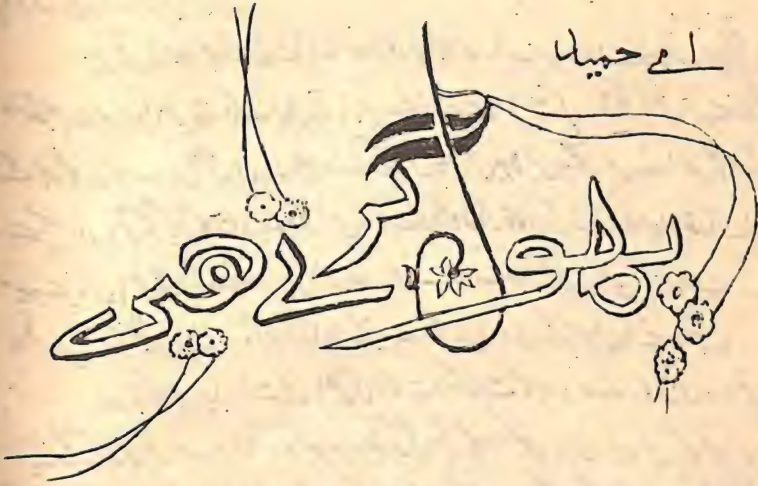 اے حمید
پھول گرتے ہیں